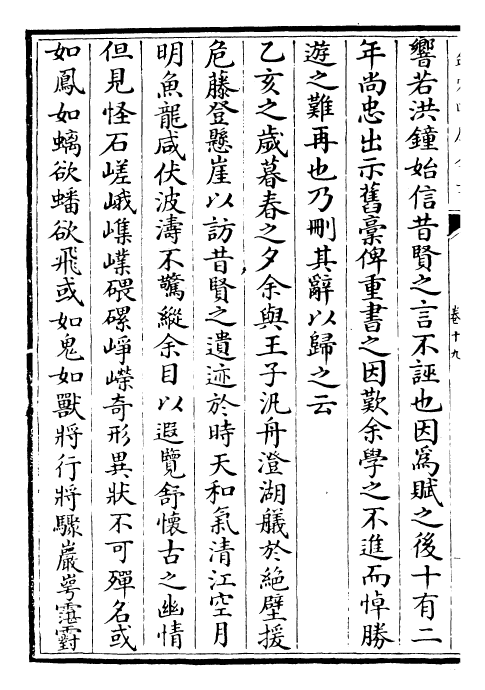 卷十九
響若洪鐘始信昔賢之言不誣也因為賦之後十有二
年尚忠出示舊稾俾重書之因歎余學之不進而悼勝
遊之難再也乃刪其辭以歸之云
乙亥之歲暮春之夕余與王子汎舟澄湖艤於絶壁援
危藤登懸崖以訪昔賢之遺迹於時天和氣清江空月
明魚龍咸伏波濤不驚縱余目以遐覽舒懷古之幽情
但見怪石嵯峨嶕嶫磈磥崢嶸奇形異狀不可殫名或
如鳳如螭欲蟠欲飛或如鬼如獸將行將驟巖崿霮䨴